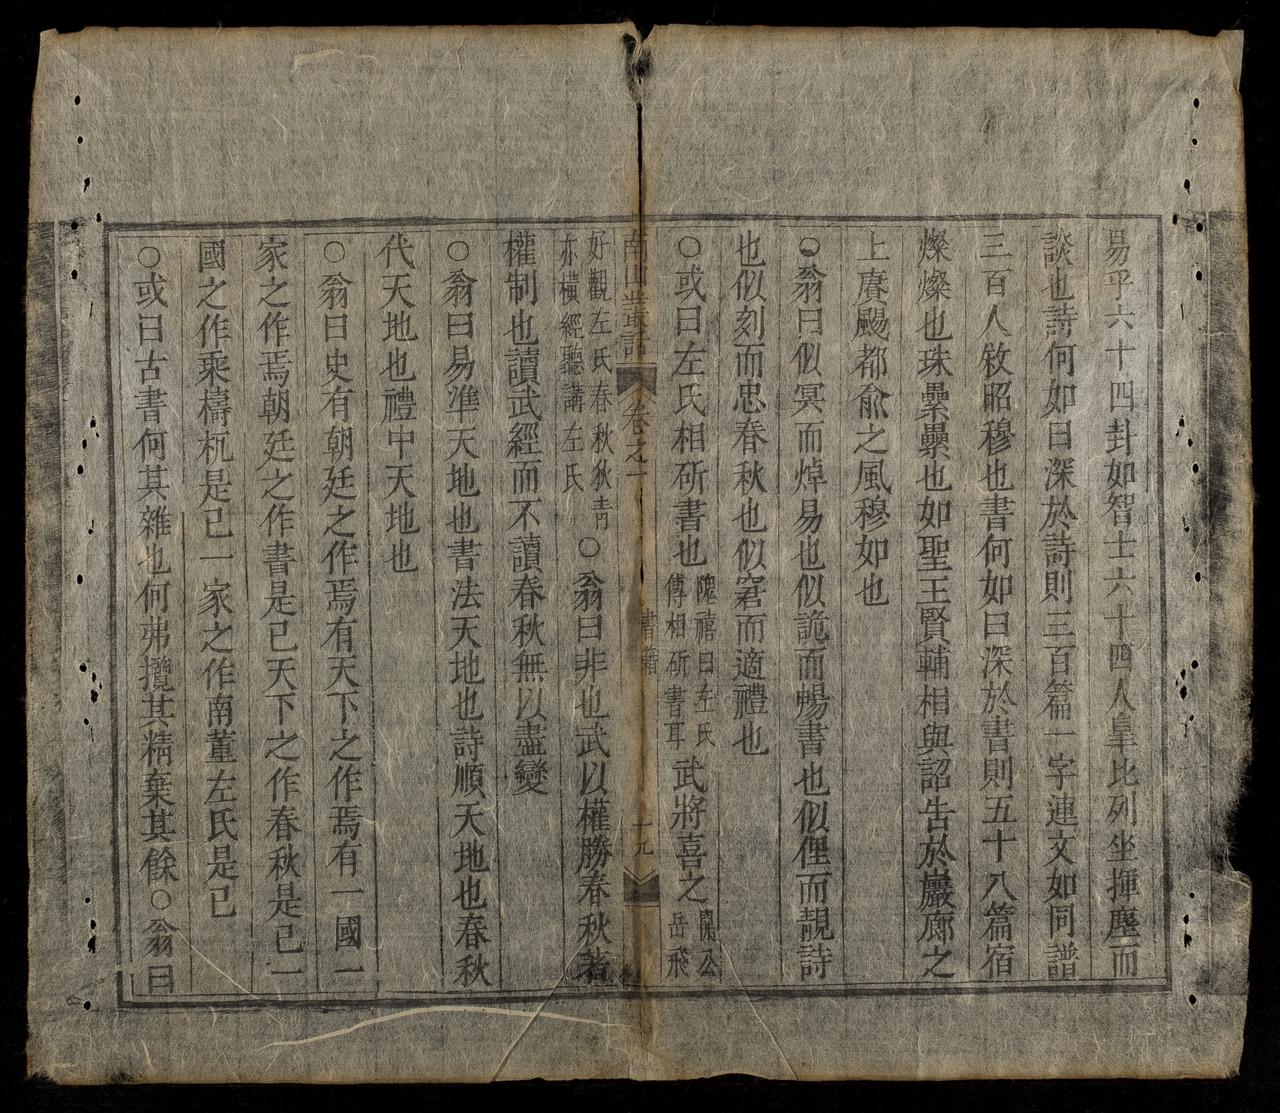 易乎六十四卦如智士六十四人皐比列坐揮麈而
談也詩何如曰深於詩則三百篇一字連文如同譜
三百人敘昭穆也書何如曰深於書則五十八篇宿
燦燦也珠纍纍也如聖王賢輔相與詔告於巖廊之
上賡颺都兪之風穆如也
○翁曰似冥而焯易也似詭而暢書也似俚而靚詩
也似刻而忠春秋也似窘而適禮也
○或曰左氏相斫書也隗禧曰左氏傳相斫書耳武將喜之關公岳飛
南山叢話 卷之一 書籍 一 元
好觀左氏春秋狄青亦橫經聽講左氏○翁曰非也武以權勝春秋著
權制也讀武經而不讀春秋無以盡變
○翁曰易準天地也書法天地也詩順天地也春秋
代天地也禮中天地也
○翁曰史有朝廷之作焉有天下之作焉有一國一
家之作焉朝廷之作書是已天下之作春秋是已一
國之作乘檮杌是已一家之作南董左氏是已
○或曰古書何其雜也何弗攬其精棄其餘○翁曰